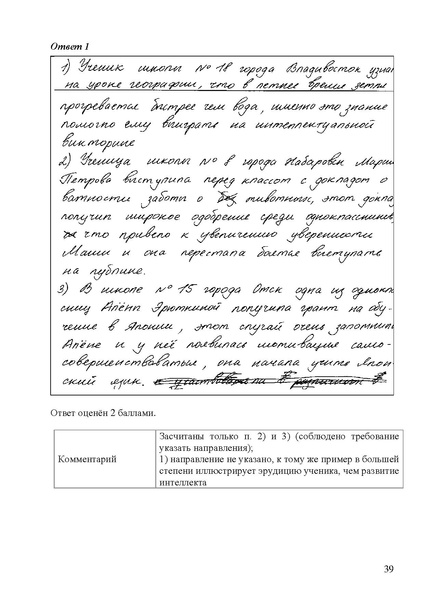 Ответ 1
1) Ученик школы № 18 города Владивосток узнал
на уроке географии, что в летнее время земля
прогревается быстрее чем вода, именно это знание
помогло ему выиграть на интеллектуальной
викторине
2) Ученица школы № 8 города Хабаровск Мария
Петрова выступила перед классом с докладом о
важности заботы о животных, этот докла
получил широкое одобрение среди одноклассников,
что привело к увеличению уверенности
Маши и она перестала боятся выступать
на публике.
3) В школе № 15 города Омск одна из однокла
сниц Алёны Эрюткиной получила грант на обу-
чение в Японии, этот случай очень запомнил
Алёне и у неё появилась мотивация само-
совершенствоваться, она начала учить Япон-
ский язык.
Ответ оценён 2 баллами.
Комментарий
Засчитаны только п. 2) и 3) (соблюдено требование
указать направления);
1) направление не указано, к тому же пример в большей
степени иллюстрирует эрудицию ученика, чем развитие
интеллекта
39